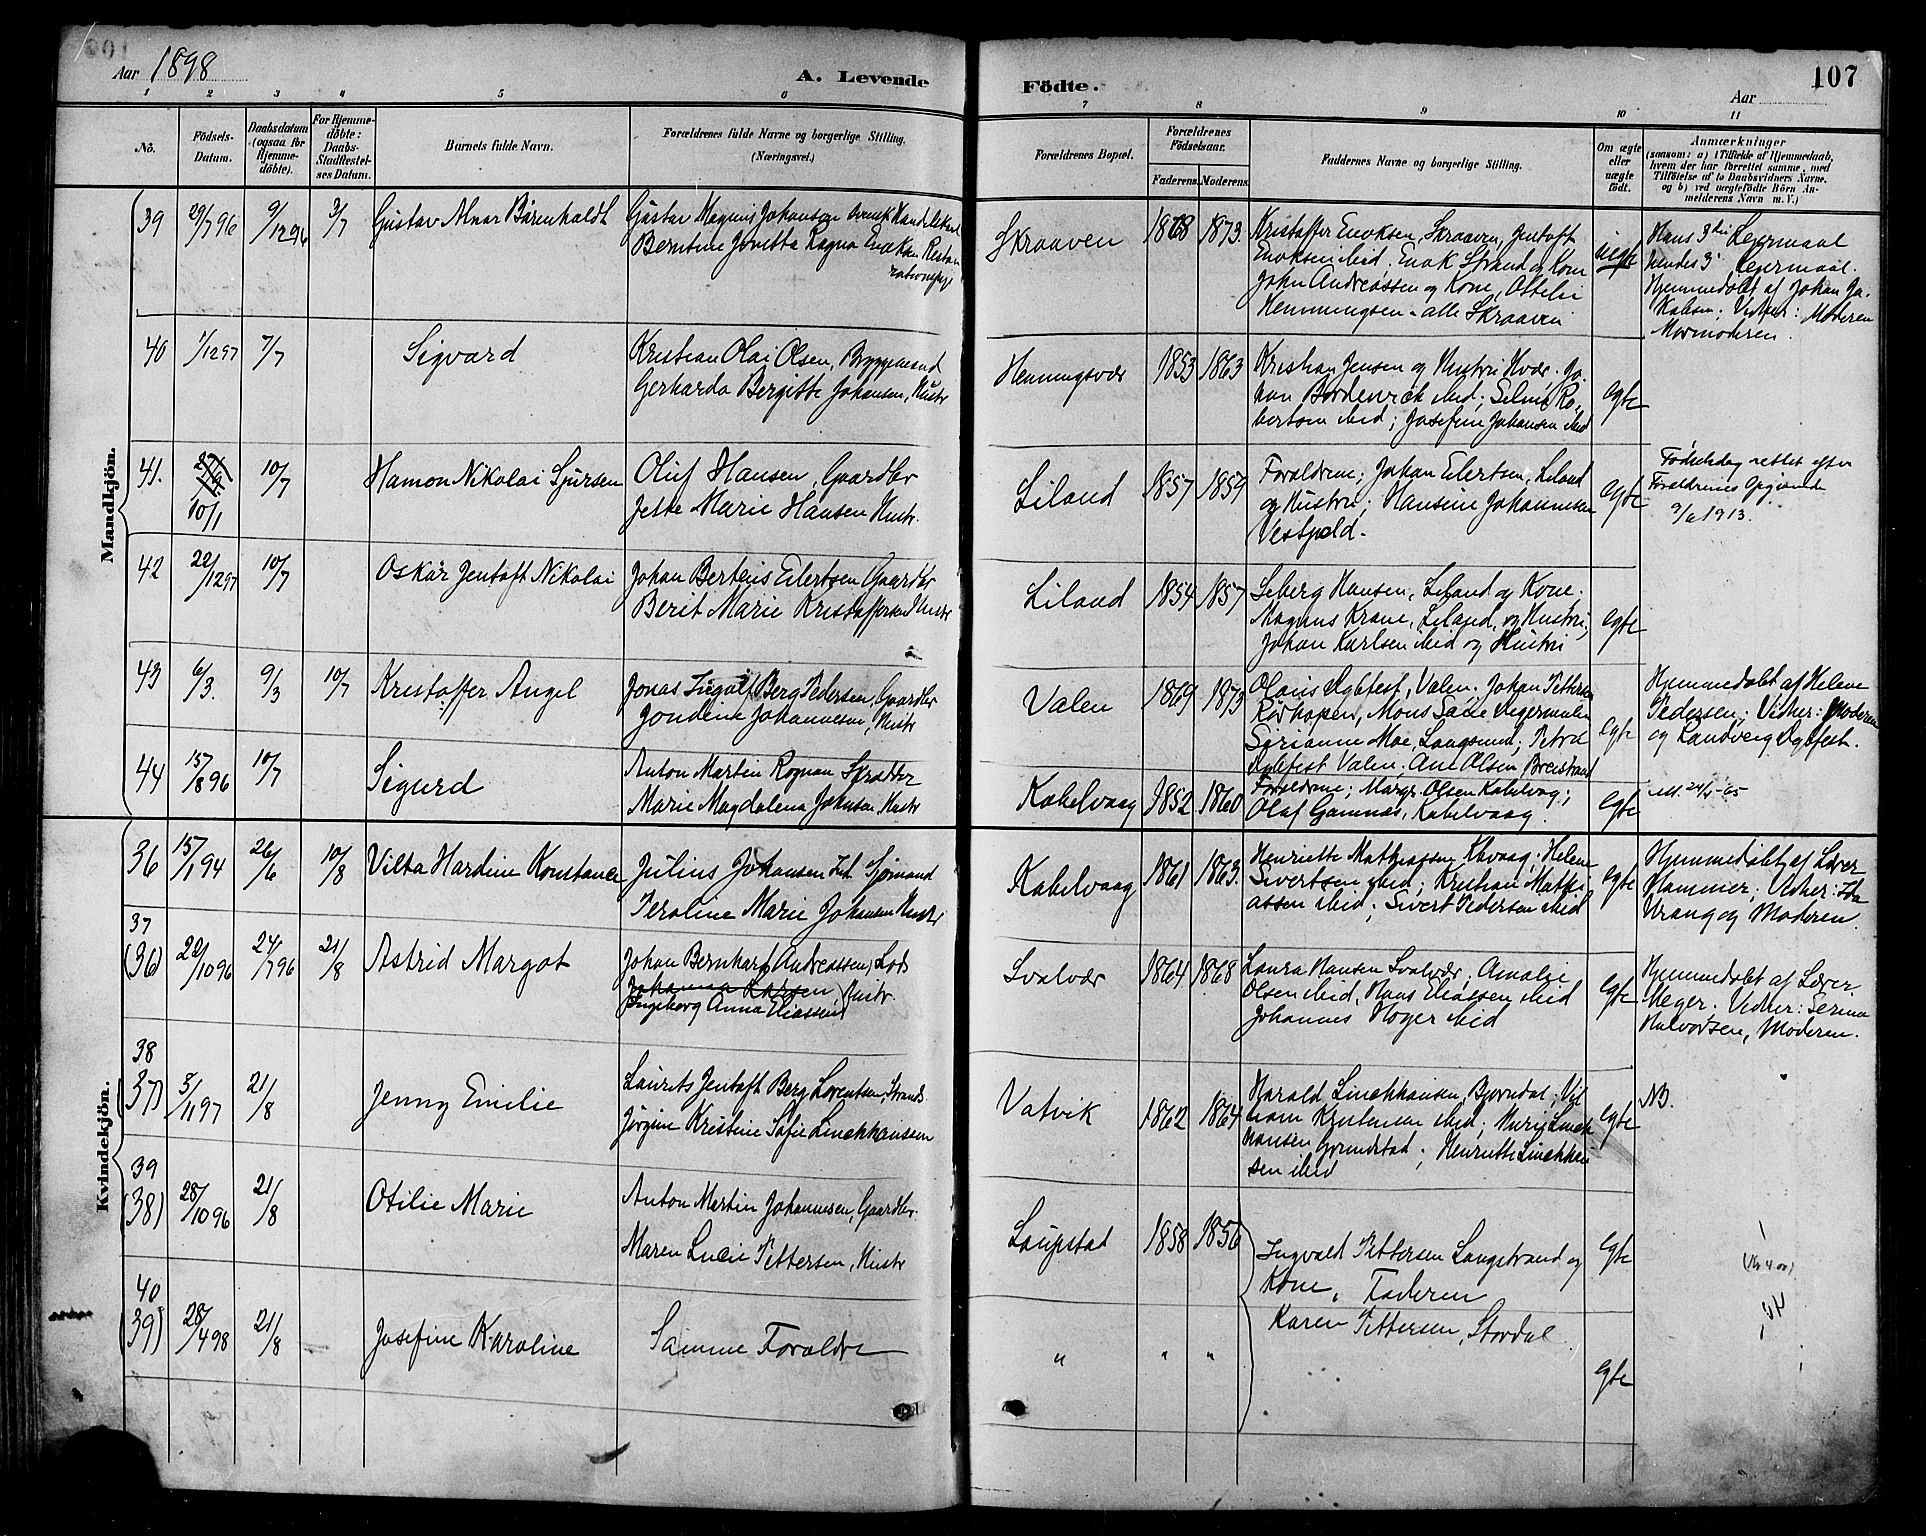 Aar 1898
A. Levende
Födte.
Aar
107
1 2 3 4 5 6 7 8 9 10 11
Nö.
Födsels-
Datum.
Daabsdatum
(ogsaa for
Hjemme-
döbte).
For Hjemme-
döbte:
Daabs-
Stadfæstel-
ses Datum.
Barnets fulde Navn.
Forældrenes fulde Navne og borgerlige Stilling.
(Næringsvei.)
Forældrenes Bopæl.
Forældrenes
Födselsaar.
Faderens. Moderens.
Faddernes Navne og borgerlige Stilling.
Om ægte
eller
uægte
födt.
Anmærkninger
(saasom: a) i Tilfælde af Hjemmedaab,
hvem der har forrettet samme, med
Tilföielse af to Daabsvidners Navne,
og b) ved uægtefödte Börn An-
melderens Navn m. V.)
Mandkjön.
39 29/7 96 9/12 96 3/7 Gustav Alnar Bärenholdt
Gustav Magnus Johanson svensk
Berntine Jonetta Ragna
Skraaven 1868 1873.
Kristoffer Enoksen, Skraaven, Jentoft
Enoksen ibid. Enok Strand og Kone
John Andreassen og Kone, Ottilie
Hemmingsen - alle Skraaven
uegte
Hans 3die Leiermaal
hendes 3' Leiermaal.
Hjemmedøbt af Johan Ja-
kobsen; Vidner: Moderen
Mormoderen.
40 1/12 97 7/7 Sigvard
Kristian Olai Olsen, Byggemand
Gerharda Bergitte Johansen, Hustr
Henningsvær 1853 1863
Kristian Jensen og Hustru Hvær. Jo-
han ibid; Selma Ro-
bertsen ibid; Josefine Johansen ibid
egte
41. 10/1 10/7 Hamon Nikolai Sjursen
Oluf Hansen, Gaardbr
Jette Marie Hansen Hustr.
Liland 1857 1859
Forældrene; Johan Eilertsen, Liland
og Hustru; Hansine Johannesen
Vestpold.
egte
Fødselsdag rettet efter
Forældrenes Opgivende
9/6 1913.
42 22/12 97 10/7 Oskar Jentoft Nikolai
Johan Berteus Eilertsen Gaardbr
Berit Marie Kristoffersen Hustr
Liland 1854 1857
Seberg Hansen, Liland og Kone.
Magnus Krane, Liland, og Hustru;
Johan Karlsen ibid og Hustru
egte
43 6/3. 9/3 10/7 Kristoffer Angel
Jonas Ingolf Berg Pedersen, Gaardbr
Jondine Johannesen, Hustr
Valen 1869 1873
Olaus Aglefest, Valen. Johan Pettersen
Rørhopen, Mons Digermulen
Sirianne Moe, Langsund; Petra
Aglefest Valen; Ane Olsen, Breistrand
egte
Hjemmedøbt af Helene
Pedersen; Vidner: Moderen
og Randveig Aglefest.
44 15/8 96 10/7 Sigurd
Anton Martin Rognan Skrædder
Marie Magdalena Johnsen Hustr
Kabelvaag 1852 1860
Forældrene; Margr. Olsen Kabelvag;
Olaf Gamnæs, Kabelvaag.
egte
Kvindekjön.
36 15/1 94 26/6 10/8 Vilta Hardine Konstance
Julius Johansen Sjømand
Peroline Marie Johansen Hustr
Kabelvaag 1861 1863.
Henriette Mathiassen Kbvaag; Helene
Sivertsen ibid; Kristian Mathi-
assen ibid; Sivert Pedersen ibid
egte
Hjemmedøbt af Lærer
Hammer; Vidner: Ida
Vrang og Moderen.
37
(36) 22/10 96 24/7 96 21/8 Astrid Margot
Johan Bernhart Andreassen, Lods
Johanna Larsen, Hustr.
Ingeborg Anna Eliassen
Svolvær 1864 1868
Laura Hansen Svolvær. Amalie
Olsen ibid, Hans Eliassen ibid
Johannes Høyer ibid
egte
Hjemmedøbt af Lærer
Meger. Vidner: Serina
Halvorsen, Moderen.
38
37) 3/11 97 21/8 Jenny Emilie
Laurits Jentoft Berg Lorentsen, Strands.
Jørgine Kristine Sofie Linckhausen
Vatvik 1862 1864
Harald Linckhausen, Bjorndal; Vil-
ibid; Marie Linck-
hausen Grundstad; Henriette Linckhau-
sen ibid
egte
NB.
39
(38) 28/10 96 21/8 Otilie Marie
Anton Martin Johannesen, Gaardbr.
Maren Lucie Pettersen, Hustr
Laupstad 1858 1856
Ingvald Pettersen Langstrand og
Kone, Faderen
Karen Pettersen, Stordal.
egte
40
(39) 28/4 98 21/8 Josefine Karoline
Samme Forældre
" " "
egte